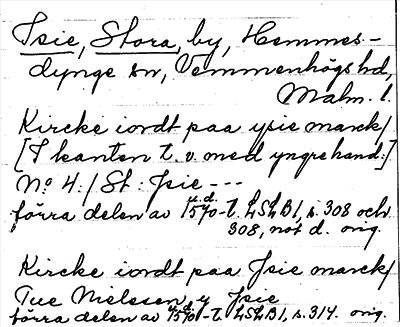 Isie, Stora, by, Hemmes-
dynge sn, Vemmenhögs hd,
Malm. l.
Kircke iordt paa ysie marck/
[I kanten t. v. med yngre hand:]
No 4./ St: Isie ---
u.d.
förra delen av 1570-t. LSLB1, s. 308 och
308, not d. orig.
Kircke iordt paa Isie marck/
Tue Nielssen, y Isie
u.d.
förra delen av 1570-t. LSLB1, s. 314. orig.